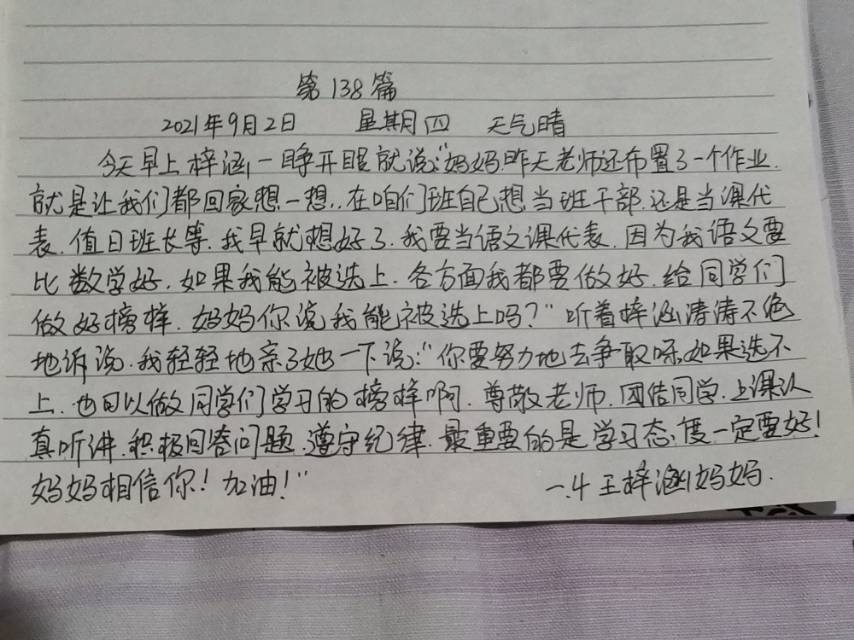 第138篇
2021年9月2日 星期四 天气晴
今天早上梓涵一睁开眼就说:"妈妈.昨天老师还布置了一个作业.
就是让我们都回家想一想..在咱们班自己想当班干部.还是当课代
表.值日班长等.我早就想好了.我要当语文课代表.因为我语文要
比数学好.如果我能被选上.各方面我都要做好.给同学们
做好榜样.妈妈你说我能被选上吗?"听着梓涵涛涛不绝
地诉说.我轻轻地亲了她一下说:"你要努力地去争取呀.如果选不
上.也可以做同学们学习的榜样啊.尊敬老师.团结同学.上课认
真听讲.积极回答问题.遵守纪律.最重要的是学习态度一定要好!
妈妈相信你!加油!"
一.4王梓涵妈妈.